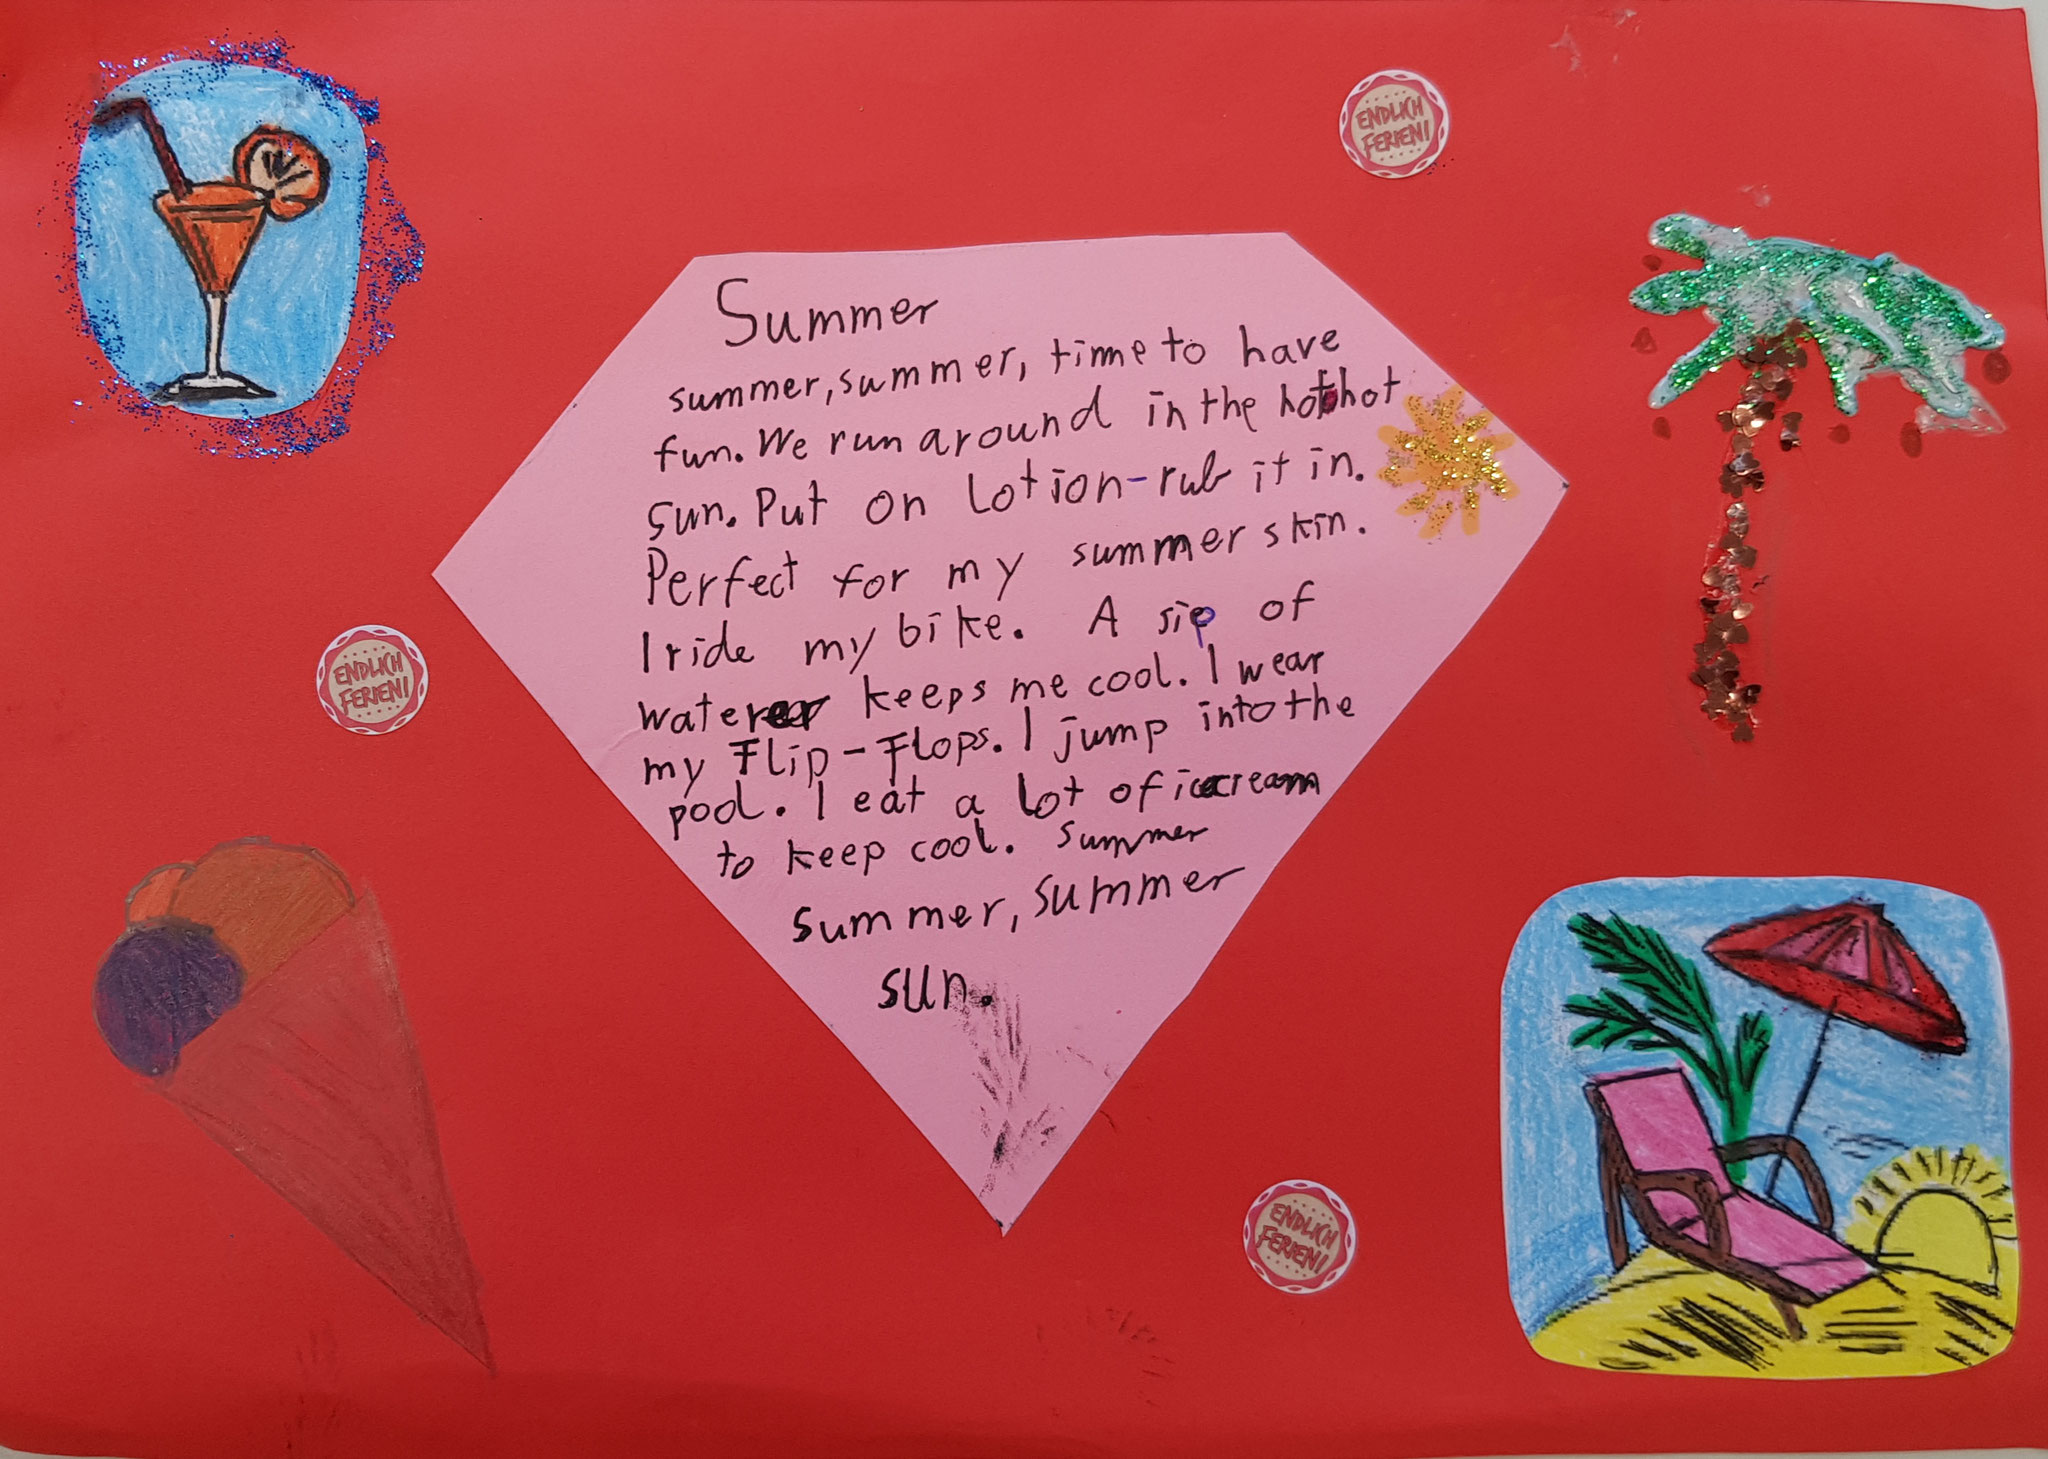 ENDLICH
FERIEN!
Summer
summer, summer, time to have
fun. We run around in the hot hot
sun. Put on Lotion-rub it in.
Perfect for my summer skin.
I ride my bike. A sip of
water keeps me cool. I wear
my Flip-Flops. I jump into the
pool. I eat a lot of icecream
to keep cool. Summer
summer, summer
sun.
ENDLICH
FERIEN!
ENDLICH
FERIEN!